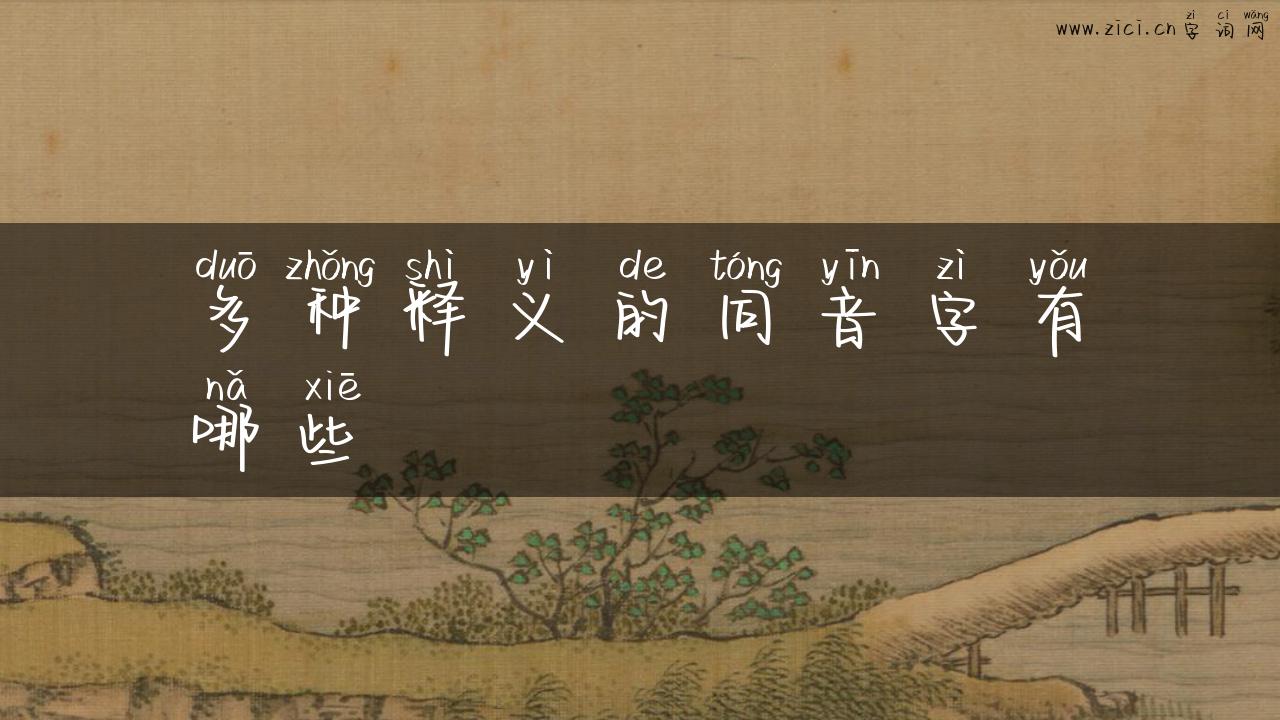 zì cí wǎng
www.zici.cn 字词网
duō zhǒng shì yì de tóng yīn zì yǒu
多种释义的同音字有
nǎ xiē
哪些